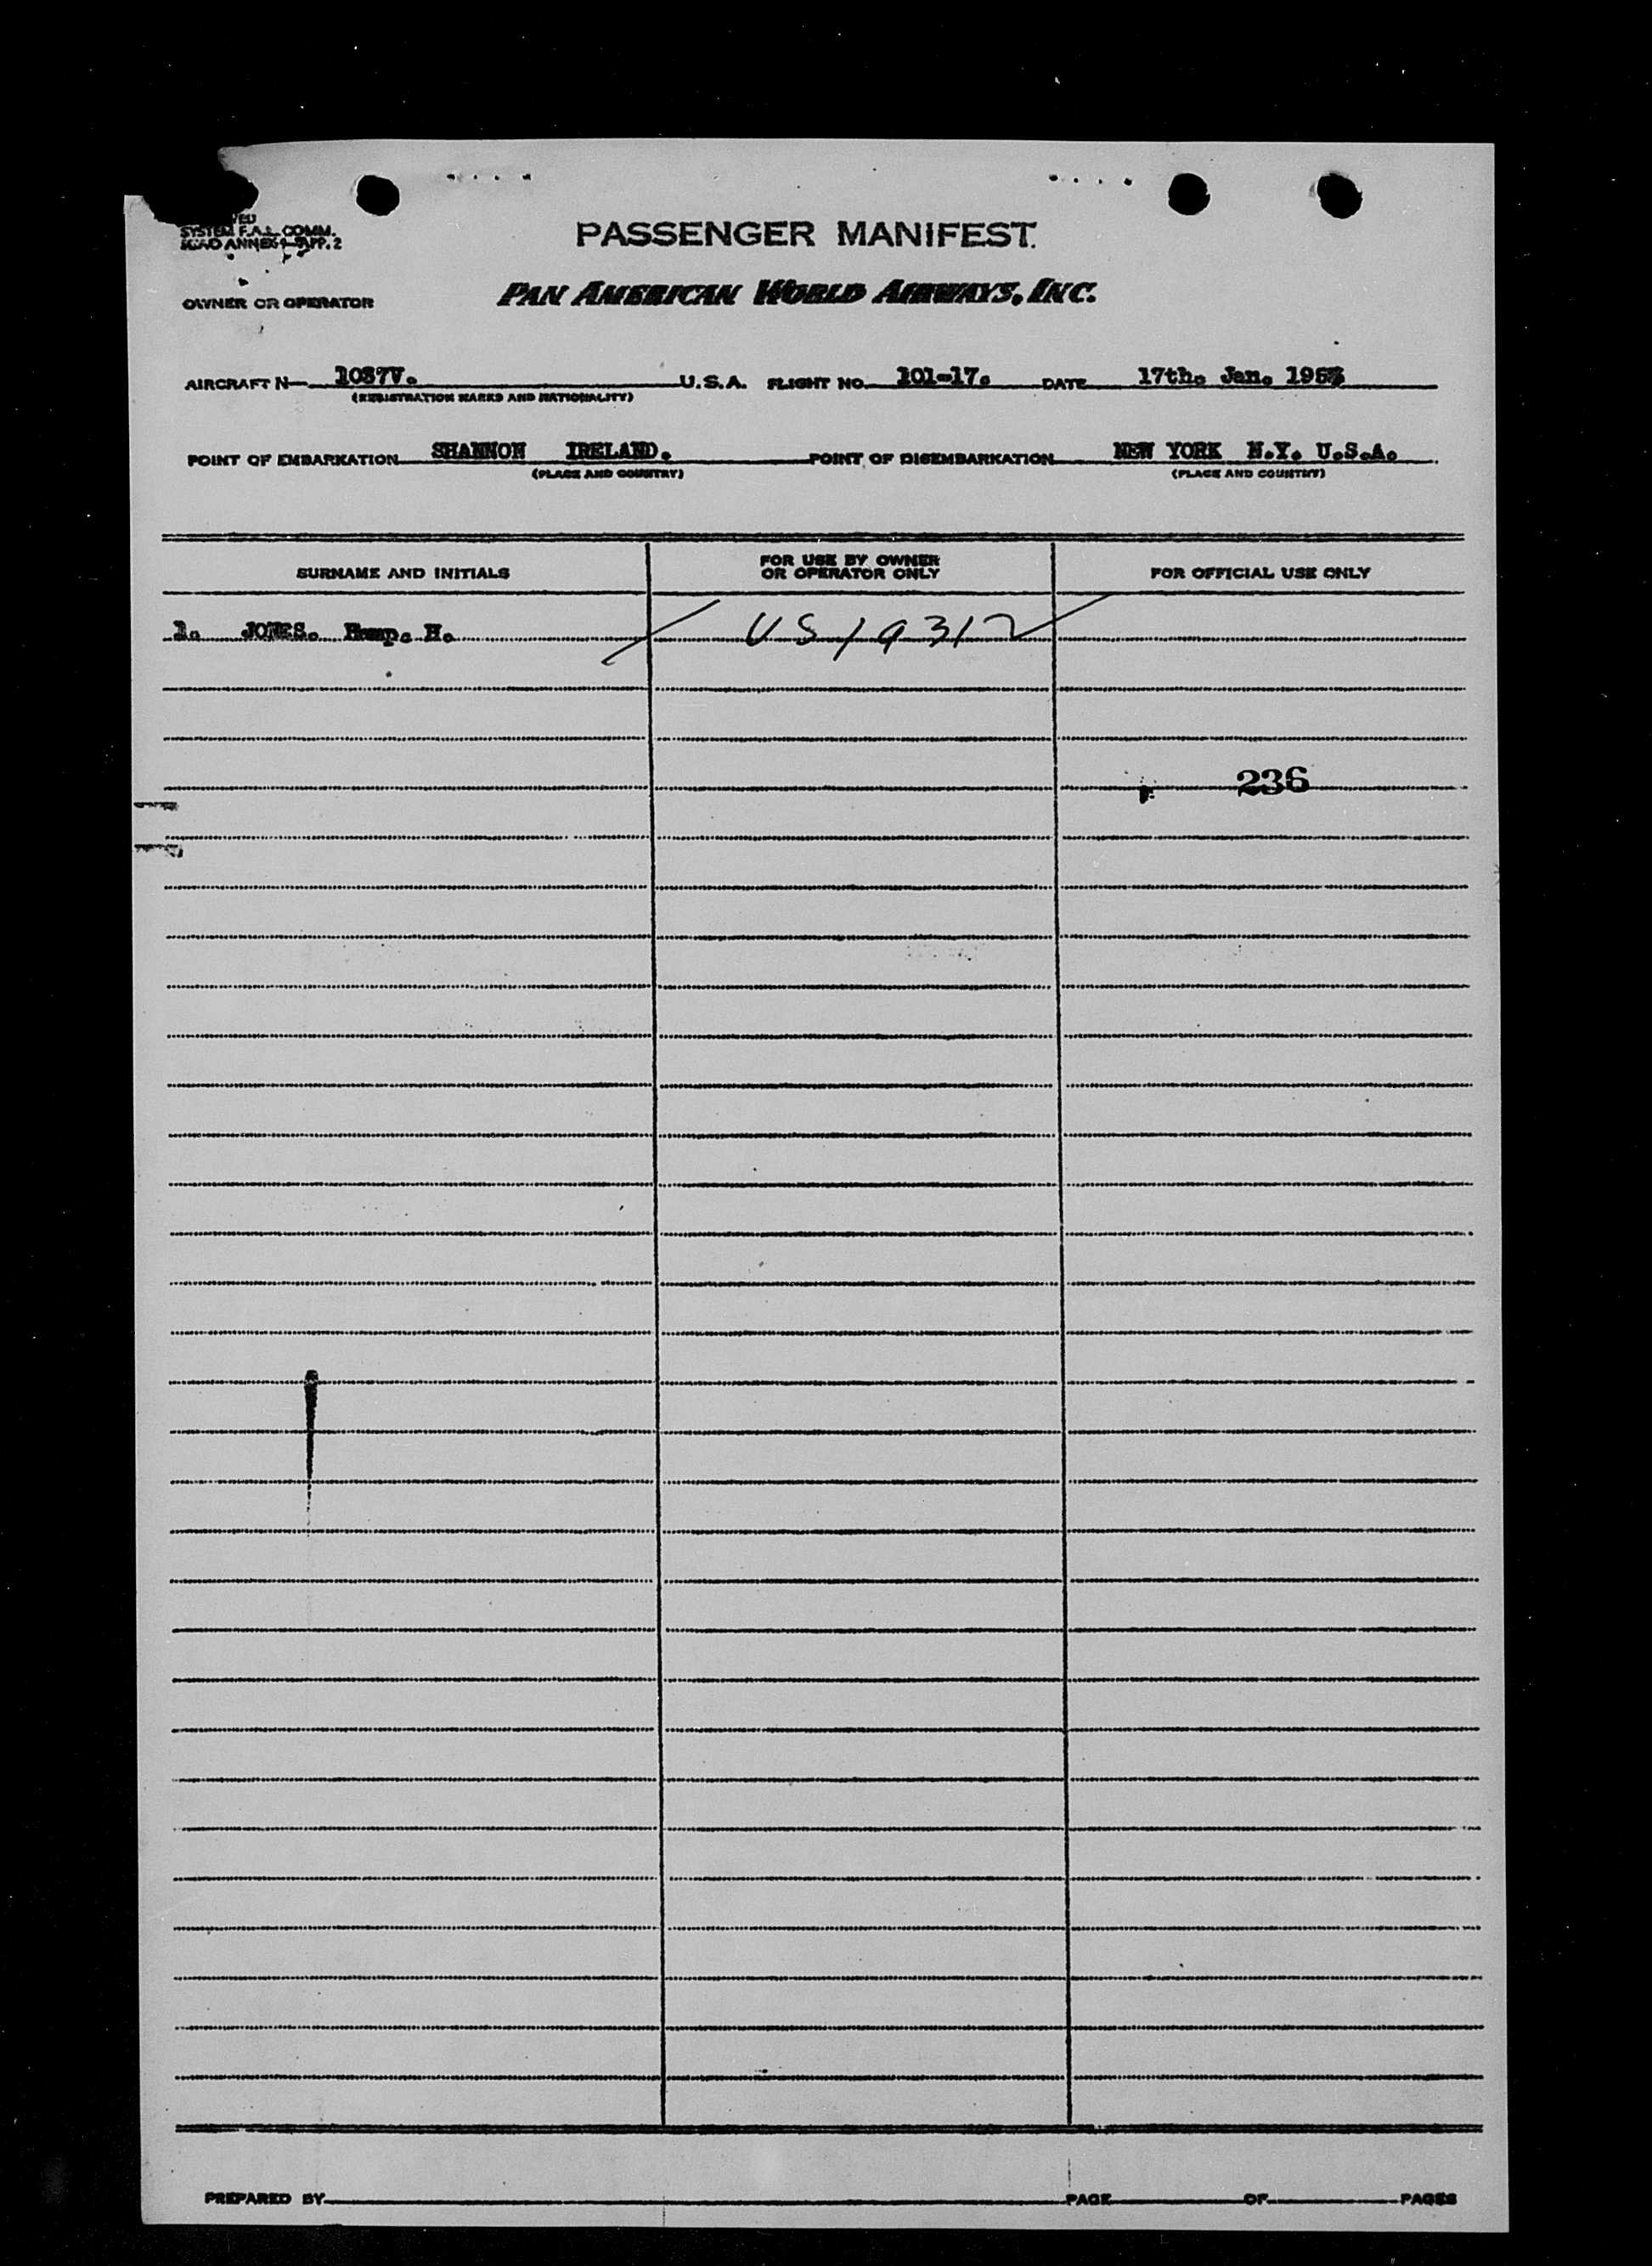 SYSTEM F.A.L. COMM.
ICAO ANNEX 9 APP. 2
PASSENGER MANIFEST.
OWNER OR OPERATOR PAN AMERICAN WORLD AIRWAYS, INC.
AIRCRAFT N— 1037V. U.S.A. FLIGHT NO. 101-17. DATE 17th. Jan. 1953
(REGISTRATION MARKS AND NATIONALITY)
POINT OF EMBARKATION SHANNON IRELAND. POINT OF DISEMBARKATION NEW YORK N.Y. U.S.A.
(PLACE AND COUNTRY) (PLACE AND COUNTRY)
SURNAME AND INITIALS FOR USE BY OWNER OR OPERATOR ONLY FOR OFFICIAL USE ONLY
1. JONES. H. US/9312
236
PREPARED BY PAGE OF PAGES